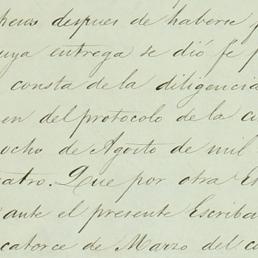 despues de haberse
uya entrega se dió fe
consta de la diligencia
en del protocolo de la
ocho de Agosto de mil
atro. Que por otra
ante el presente Escriba
catorce de Marzo del